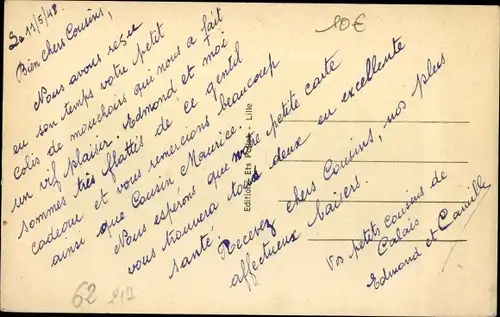 Le 11/5/48.
Bien chers Cousins,
Nous avons reçu
en son temps votre petit
colis de mouchoirs qui nous a fait
un vif plaisir. Edmond et moi
sommes très flattés de ce gentil
cadeau et vous remercions beaucoup
ainsi que Cousin Maurice.
Nous espérons que notre petite carte
vous trouvera tous deux en excellente
santé.
Recevez chers Cousins, nos plus
affectueux baisers.
Vos petits cousins de
Calais
Edmond et Camille
10€
Editions Ets - Lille
62